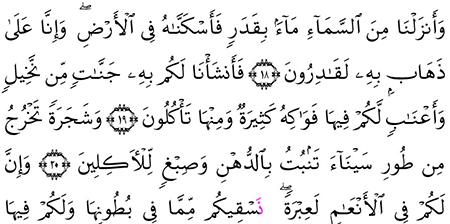 وَأَنزَلْنَا مِنَ السَّمَآءِ مَآءًۢ بِقَدَرٍۢ فَأَسْكَنَّـٰهُ فِى الْأَرْضِ ۖ وَإِنَّا عَلَىٰ
ذَهَابٍۭ بِهِۦ لَقَـٰدِرُونَ ﴿١٨﴾ فَأَنشَأْنَا لَكُم بِهِۦ جَنَّـٰتٍۢ مِّن نَّخِيلٍۢ
وَأَعْنَـٰبٍۢ لَّكُمْ فِيهَا فَوَٰكِهُ كَثِيرَةٌۭ وَمِنْهَا تَأْكُلُونَ ﴿١٩﴾ وَشَجَرَةًۭ تَخْرُجُ
مِن طُورِ سَيْنَآءَ تَنۢبُتُ بِالدُّهْنِ وَصِبْغٍۢ لِّلْأَكِلِينَ ﴿٢٠﴾ وَإِنَّ
لَكُمْ فِى الْأَنْعَـٰمِ لَعِبْرَةًۭ ۖ نَسْقِيكُم مِّمَّا فِى بُطُونِهَا وَلَكُمْ فِيهَا